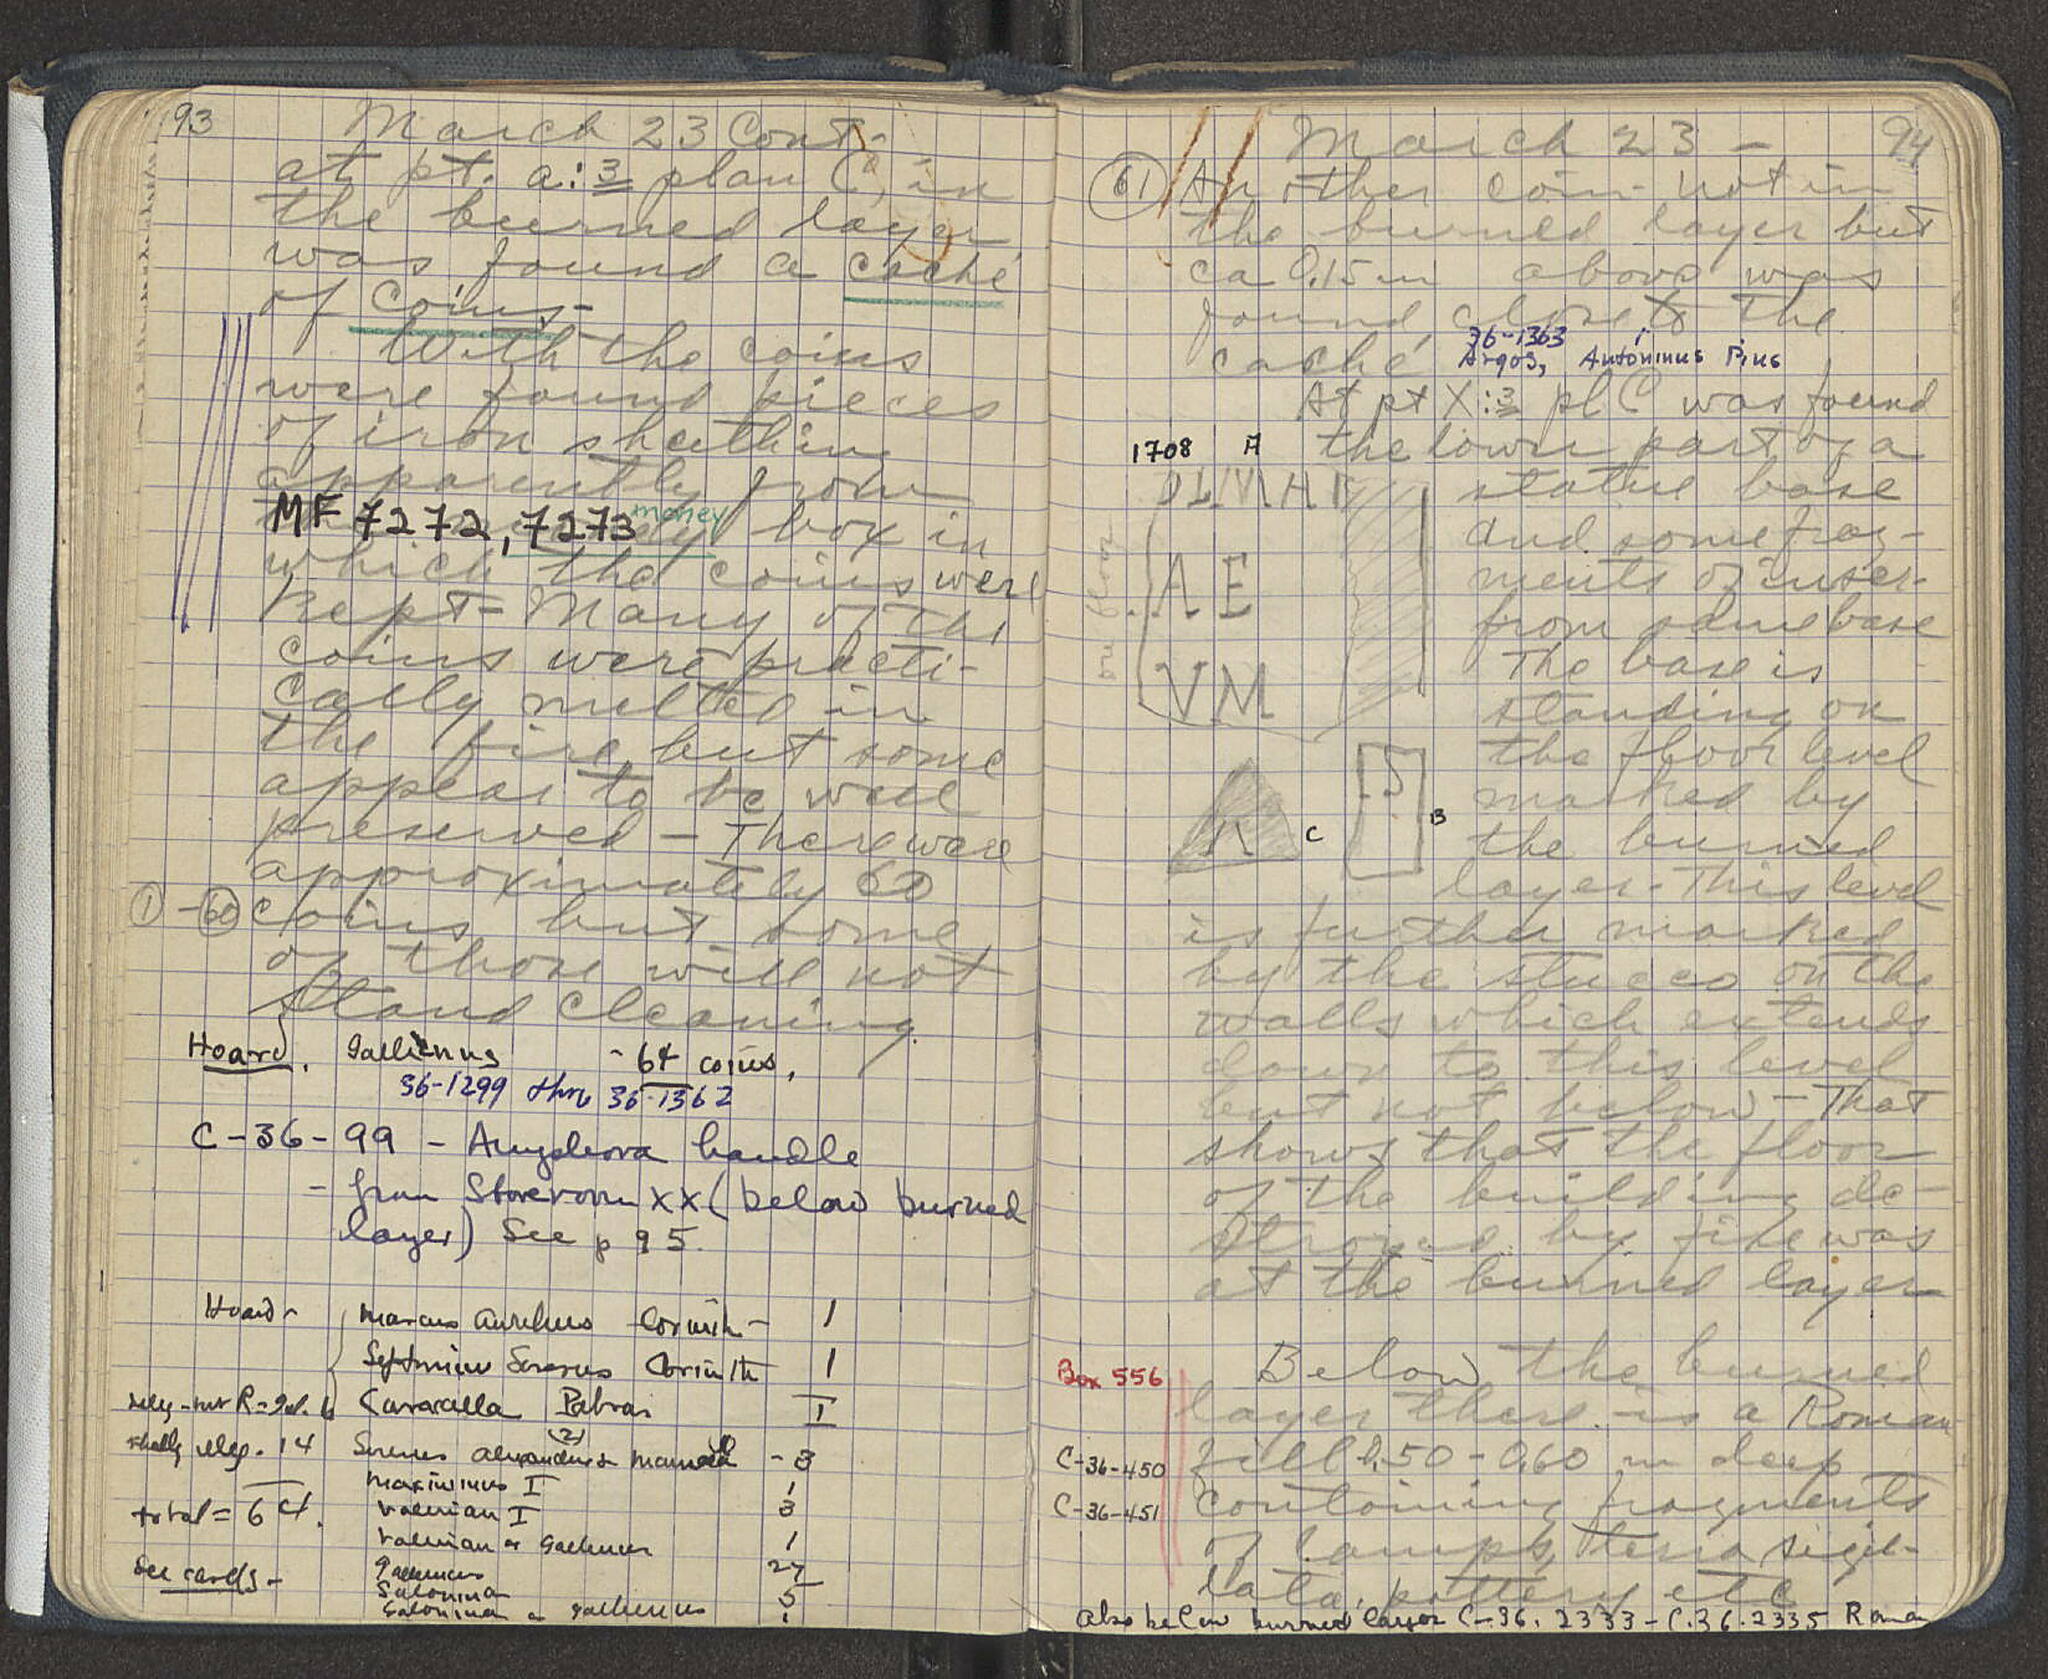 93
March 23 Cont-
at pt. a:3 plan C, in
the burned layer
was found a caché
of coins-
With the coins
were found pieces
of iron sheathing
apparently from
MF 7272, 7273 money box in
which the coins were
kept- Many of the
coins were practi-
cally melted in
the fire but some
appear to be well
preserved - There were
approximately 60
① - 60 coins but some
of those will not
stand cleaning.
Hoard. Gallienus - 64 coins,
36-1299 thru 36-1362
C-36-99 - Amphora handle
- from Storeroom XX (below burned
layer) See p 95.
Hoard- Marcus Aurelius Corinth- 1
Septimius Severus Corinth 1
Caracalla Patras 1
6
14 Severus Alexander (2) & Mamaea - 3
Maximinus I 1
total = 64. Valerian I 3
Valerian or Gallienus 1
See cards- Gallienus 27
Salonina 5
Salonina or Gallienus 1
March 23 - 94
61 Another coin- not in
the burned layer but
ca 0.15 m above was
found close to the
caché 36-1363
Argos, Antoninus Pius
At pt X:3 pl C was found
1708 A the lower part of a
statue base
and some frag-
ments of inscr.
from same base
The base is
standing on
the floor level
marked by
the burned
layer- This level
on floor
A E
V M
S
C
B
is further marked
by the stucco on the
walls which extends
down to this level
but not below - That
shows that the floor
of the building de-
stroyed by fire was
at the burned layer
Box 556 Below the burned
layer there is a Roman
C-36-450 fill 0.50 - 0.60 m deep
C-36-451 containing fragments
of lamps, terra sigil-
lata, pottery etc
Also below burned layer C-36. 2333 - C.36.2335 Roman